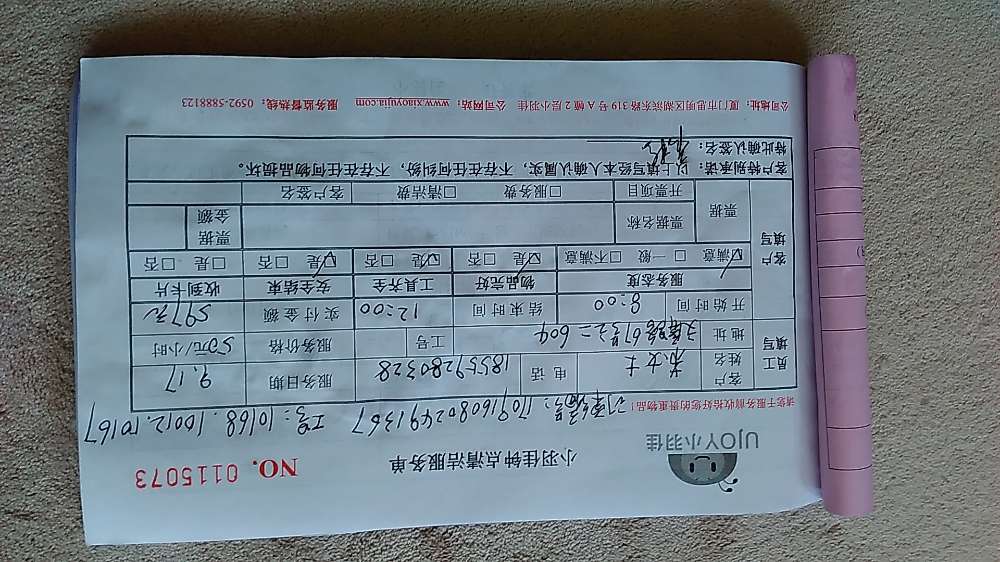 UJOY小羽佳
小羽佳钟点清洁服务单
NO. 0115073
请您于服务前收拾好您的贵重物品!
工号:10168.10012.10167
员工填写
客户姓名 女士 电话 18559280328 服务日期 9.17
地址 604 工号 服务价格 50元/小时
开始时间 8:00 结束时间 12:00 实付金额 597元
客户填写
服务态度 物品完好 工具齐全 安全结束 收到卡片
☑满意 □一般 □不满意 ☑是 □否 ☑是 □否 ☑是 □否 □是 □否
票据 票据名称 票据金额
开票项目 □服务费 □清洁费 客户签名
客户特别承诺:以上填写经本人确认属实,不存在任何纠纷,不存在任何物品损坏。
特此确认签名:
公司地址:厦门市思明区湖滨东路319号A幢2层小羽佳 公司网站:www.xiaoyujia.com 服务监督热线:0592-5888123